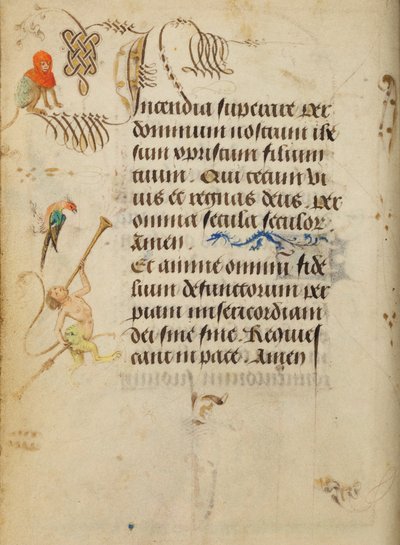 Incendia superare per
dominum nostrum ihe
sum xpristum filium
tuum. Qui tecum vi
uis et regnas deus. per
omnia secula seculor
Amen
Et anime omnium fide
lium defunctorum per
piam misericordiam
dei sine fine. Reques
cant in pace. Amen